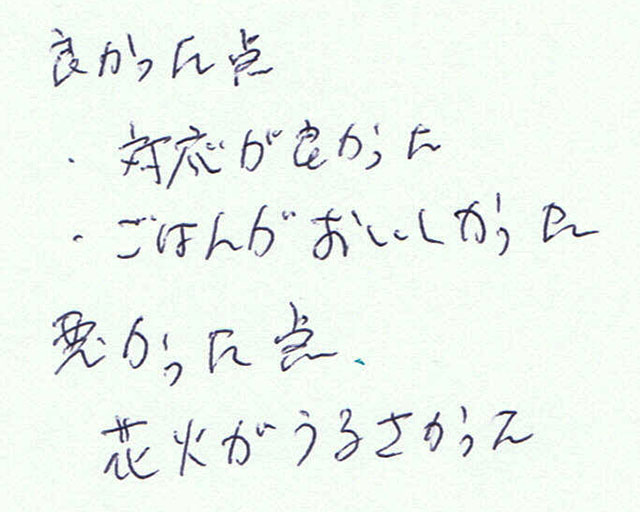 良かった点
・対応が良かった
・ごはんがおいしかった
悪かった点、
花火がうるさかった